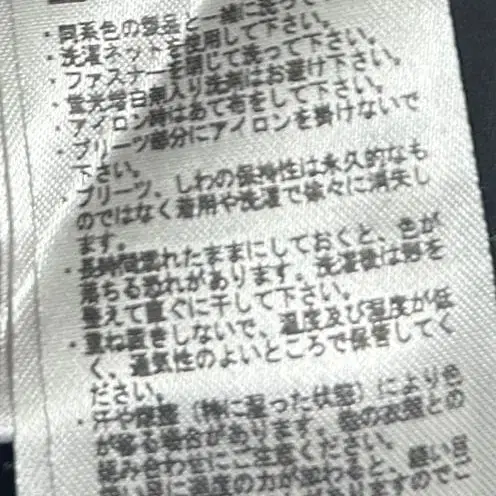 ・同系色の製品と一緒に洗って下さい。
・洗濯ネットを使用して下さい。
・ファスナーを閉じて洗って下さい。
・蛍光増白剤入り洗剤はお避け下さい。
・アイロン時はあて布をして下さい。
・プリーツ部分にアイロンを掛けないで
下さい。
・プリーツ、しわの保持性は永久的なも
のではなく着用や洗濯で徐々に消失し
ます。
・長時間濡れたままにしておくと、色が
落ちる恐れがあります。洗濯後は形を
整えて直ぐに干して下さい。
・重ね置きしないで、温度及び湿度が低
く、通気性のよいところで保管してく
ださい。
・汗や摩擦（特に湿った状態）により色
が移る場合があります。他の衣類との
組み合わせにご注意ください。
に過度の力が加わると、縫い目
ありますのでご